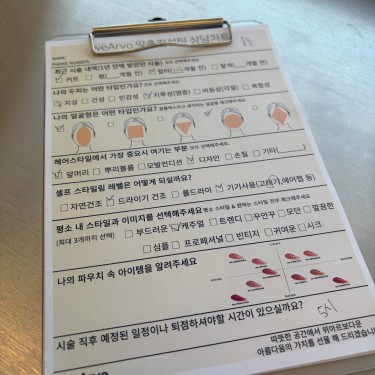 veArvo 맞춤 컨설팅 상담차트
NAME:
PHONE NUMBER:
최근 시술 내역(1년 안에 받았던 시술) 모두 선택해주세요
커트 펌( 개월 전) 컬러( 개월 전) 탈색( 개월 전)
나의 두피는 어떤 타입인가요? 모두 선택해주세요
지성 건성 민감성 지루성(염증) 비듬성(각질) 복합성
나의 얼굴형은 어떤 타입인가요?
헤어스타일에서 가장 중요시 여기는 부분 모두 선택해주세요
앞머리 뿌리볼륨 모발컨디션 디자인 손질 기타(
셀프 스타일링 레벨은 어떻게 되실까요?
자연건조 드라이기 건조 롤드라이 기기사용(고데기,에어랩 등)
평소 내 스타일과 이미지를 선택해주세요 평소 스타일 & 원하는 스타일 전부 체크해주세요
(최대 3개까지 선택) 부드러운 캐주얼 트렌디 꾸안꾸 모던 깔끔한
심플 프로페셔널 빈티지 귀여운 시크
나의 파우치 속 아이템을 알려주세요
시술 직후 예정된 일정이나 퇴점하셔야할 시간이 있으실까요?
5시
따뜻한 공간에서 위아르보다운
아름다움의 가치를 선물 해 드리겠습니